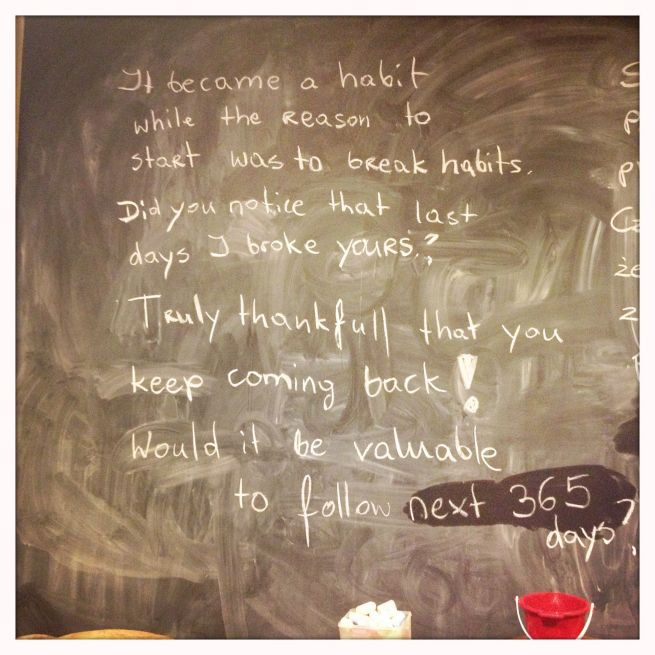 It became a habit
while the reason to
start was to break habits.
Did you notice that last
days I broke yours?
Truly thankfull that you
keep coming back!
Would it be valuable
to follow next 365
days?